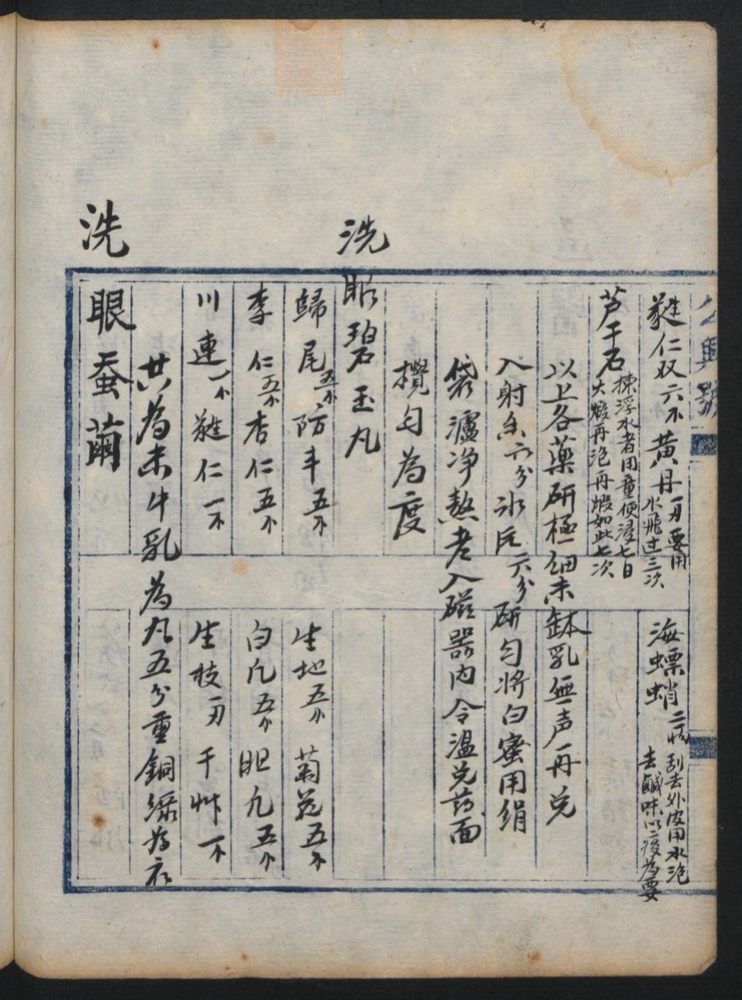 蕤仁双六个 黄丹一刃要用水飛过三次 海螵蛸二收刮去外皮用水泡去鹹味以淡為要
芦干石揀浮水者用童便浸七日大煅再泡再煅如此七次
以上各藥研極細末缽乳無声再兑
入射香六分 氷片六分研勻将白蜜用絹
袋濾净熬老入磁器内令溫兑药面
攪勻為度
洗眼碧玉丸
歸尾五个 防丰五个 生地五个 菊花五个
李仁五个 杏仁五个 白凡五个 胆凡五个
川連一个 蕤仁一个 生枝一刃 千艸一个
共為末牛乳為丸五分重銅綠為衣
洗眼蚕繭